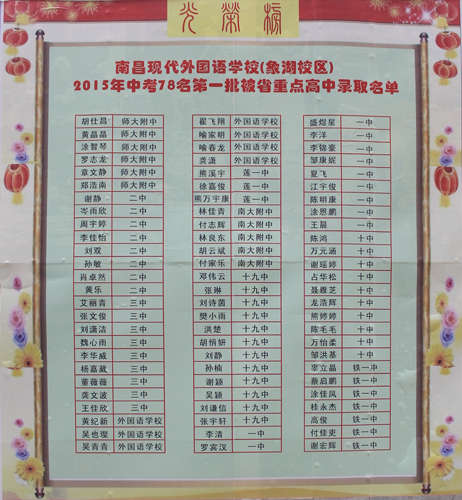 光榮榜
南昌现代外国语学校(象湖校区)
2015年中考78名第一批被省重点高中录取名单
胡仕昌 师大附中 翟飞翔 外国语学校 盛煜星 一中
黄晶晶 师大附中 喻家明 外国语学校 李洋 一中
涂智琴 师大附中 喻春龙 外国语学校 李锦豪 一中
罗志龙 师大附中 龚潇 外国语学校 邹康妮 一中
章文静 师大附中 熊溪宇 莲一中 夏飞 一中
郑浩南 师大附中 徐嘉俊 莲一中 江宇俊 一中
谢静 二中 熊万宇康 莲一中 陈明康 一中
岑雨欣 二中 林佳青 南大附中 涂恩鹏 一中
周宇婷 二中 付志辉 南大附中 王晨 一中
李佳怡 二中 林良东 南大附中 陈鸿 十中
刘双 二中 胡云斌 南大附中 万元涵 十中
孙敏 二中 付家乐 南大附中 谢瑶婷 十中
肖卓然 二中 邓伟云 十九中 占华松 十中
黄乐 二中 张琳 十九中 聂霞芝 十中
艾丽青 三中 刘诗茵 十九中 龙浩辉 十中
张文俊 三中 樊小雨 十九中 彭婷 十中
刘潇洁 三中 洪楚 十九中 陈毛毛 十中
魏心雨 三中 胡悄妍 十九中 万怡柔 十中
李华威 三中 刘静 十九中 邹洪基 十中
杨嘉葳 三中 孙楠 十九中 辜立晶 铁一中
董薇薇 三中 谢颖 十九中 蔡启鹏 铁一中
龚文波 三中 吴颖 十九中 涂佳凤 铁一中
王佳欣 三中 刘谦信 十九中 桂永杰 铁一中
黄纪新 外国语学校 张宇轩 十九中 高俊 铁一中
吴也璨 外国语学校 李清 一中 付佳更 铁一中
吴青青 外国语学校 罗宾汉 一中 谢宏辉 铁一中